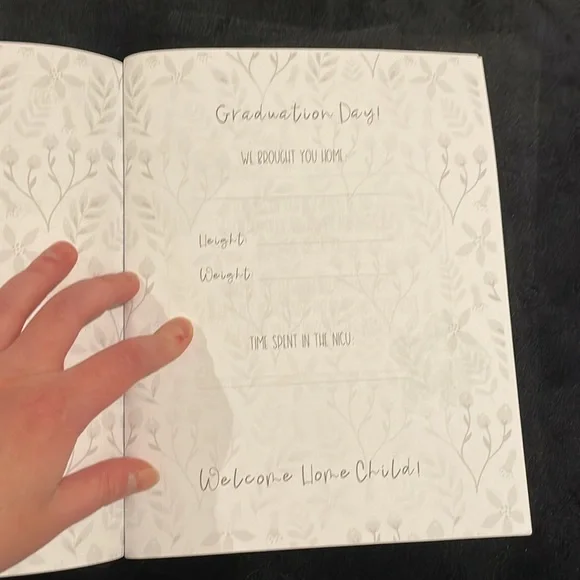 Graduation Day!
WE BROUGHT YOU HOME:
Height:
Weight:
TIME SPENT IN THE NICU:
Welcome Home Child!